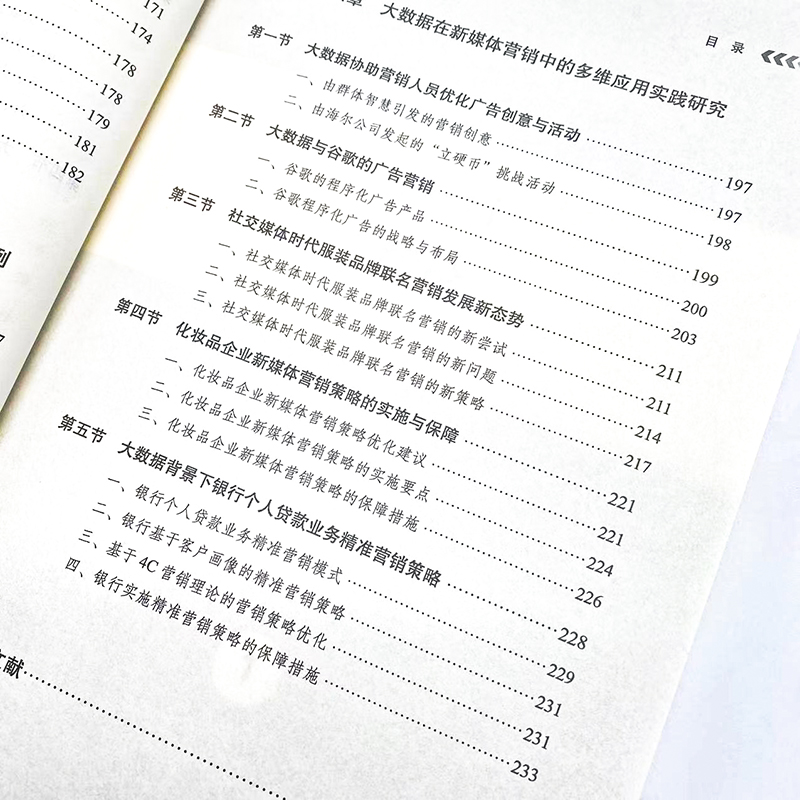 171
174
178
178
179
181
182
目 录
章 大数据在新媒体营销中的多维应用实践研究
第一节 大数据协助营销人员优化广告创意与活动 197
一、由群体智慧引发的营销创意 197
二、由海尔公司发起的“立硬币”挑战活动 198
第二节 大数据与谷歌的广告营销 199
一、谷歌的程序化广告产品 200
二、谷歌程序化广告的战略与布局 203
第三节 社交媒体时代服装品牌联名营销发展新态势 211
一、社交媒体时代服装品牌联名营销的新尝试 211
二、社交媒体时代服装品牌联名营销的新问题 214
三、社交媒体时代服装品牌联名营销的新策略 217
第四节 化妆品企业新媒体营销策略的实施与保障 221
一、化妆品企业新媒体营销策略优化建议 221
二、化妆品企业新媒体营销策略的实施要点 224
三、化妆品企业新媒体营销策略的保障措施 226
第五节 大数据背景下银行个人贷款业务精准营销策略 228
一、银行个人贷款业务精准营销模式 229
二、银行基于客户画像的精准营销策略 231
三、基于 4C 营销理论的营销策略优化 231
四、银行实施精准营销策略的保障措施 233
文献